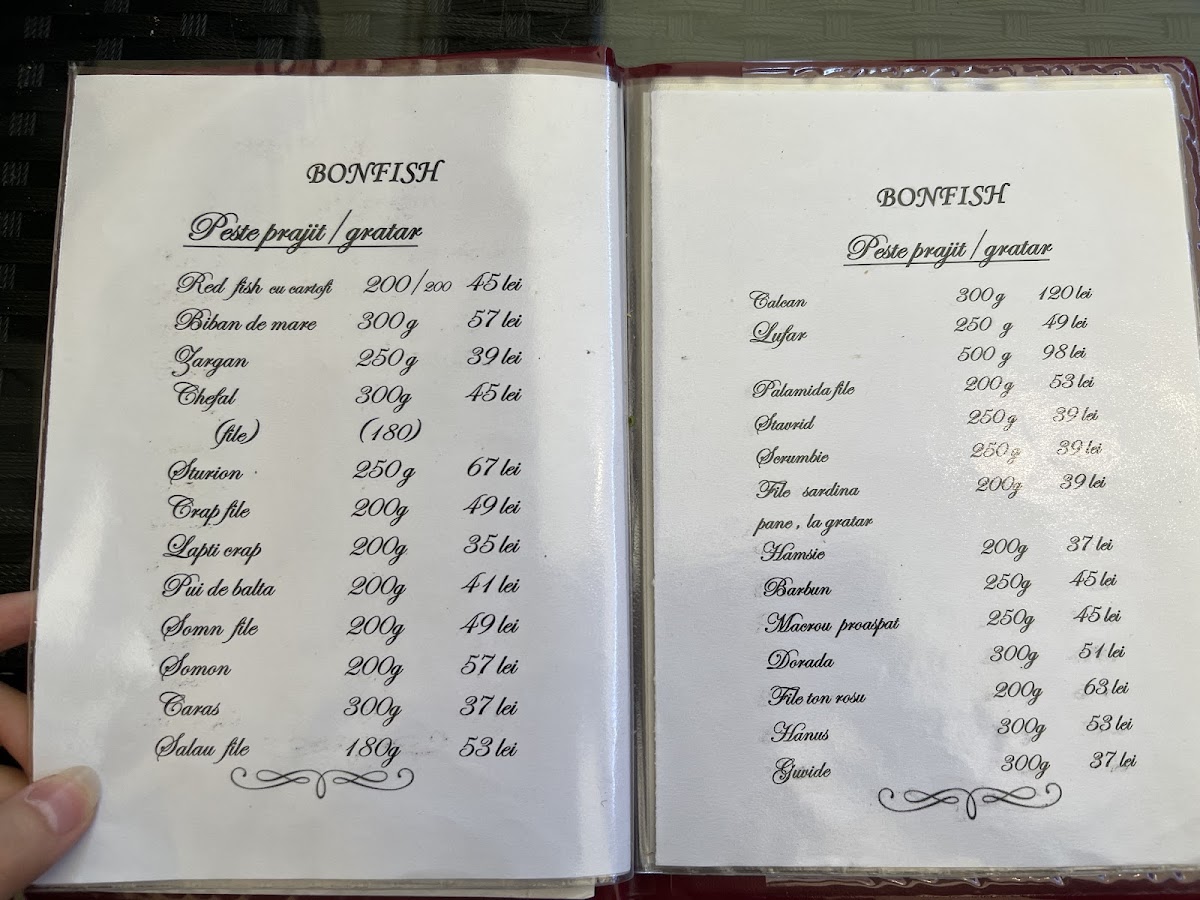 BONFISH
Peste prajit / gratar
Red fish cu cartofi 200/200 45 lei
Biban de mare 300 g 57 lei
Zargan 250 g 39 lei
Chefal 300g 45 lei
(file) (180)
Sturion 250 g 67 lei
Crap file 200g 49 lei
Lapti crap 200g 35 lei
Pui de balta 200g 41 lei
Somn file 200g 49 lei
Somon 200g 57 lei
Caras 300g 37 lei
Salau file 180g 53 lei
BONFISH
Peste prajit / gratar
Calcan 300g 120 lei
Lufar 250 g 49 lei
500 g 98 lei
Palamida file 200g 53 lei
Stavrid 250g 39 lei
Scrumbie 250g 39 lei
File sardina 200g 39 lei
pane , la gratar
Hamsie 200g 37 lei
Barbun 250g 45 lei
Macrou proaspat 250g 45 lei
Dorada 300g 51 lei
File ton rosu 200g 63 lei
Hanus 300g 53 lei
Guvide 300g 37 lei